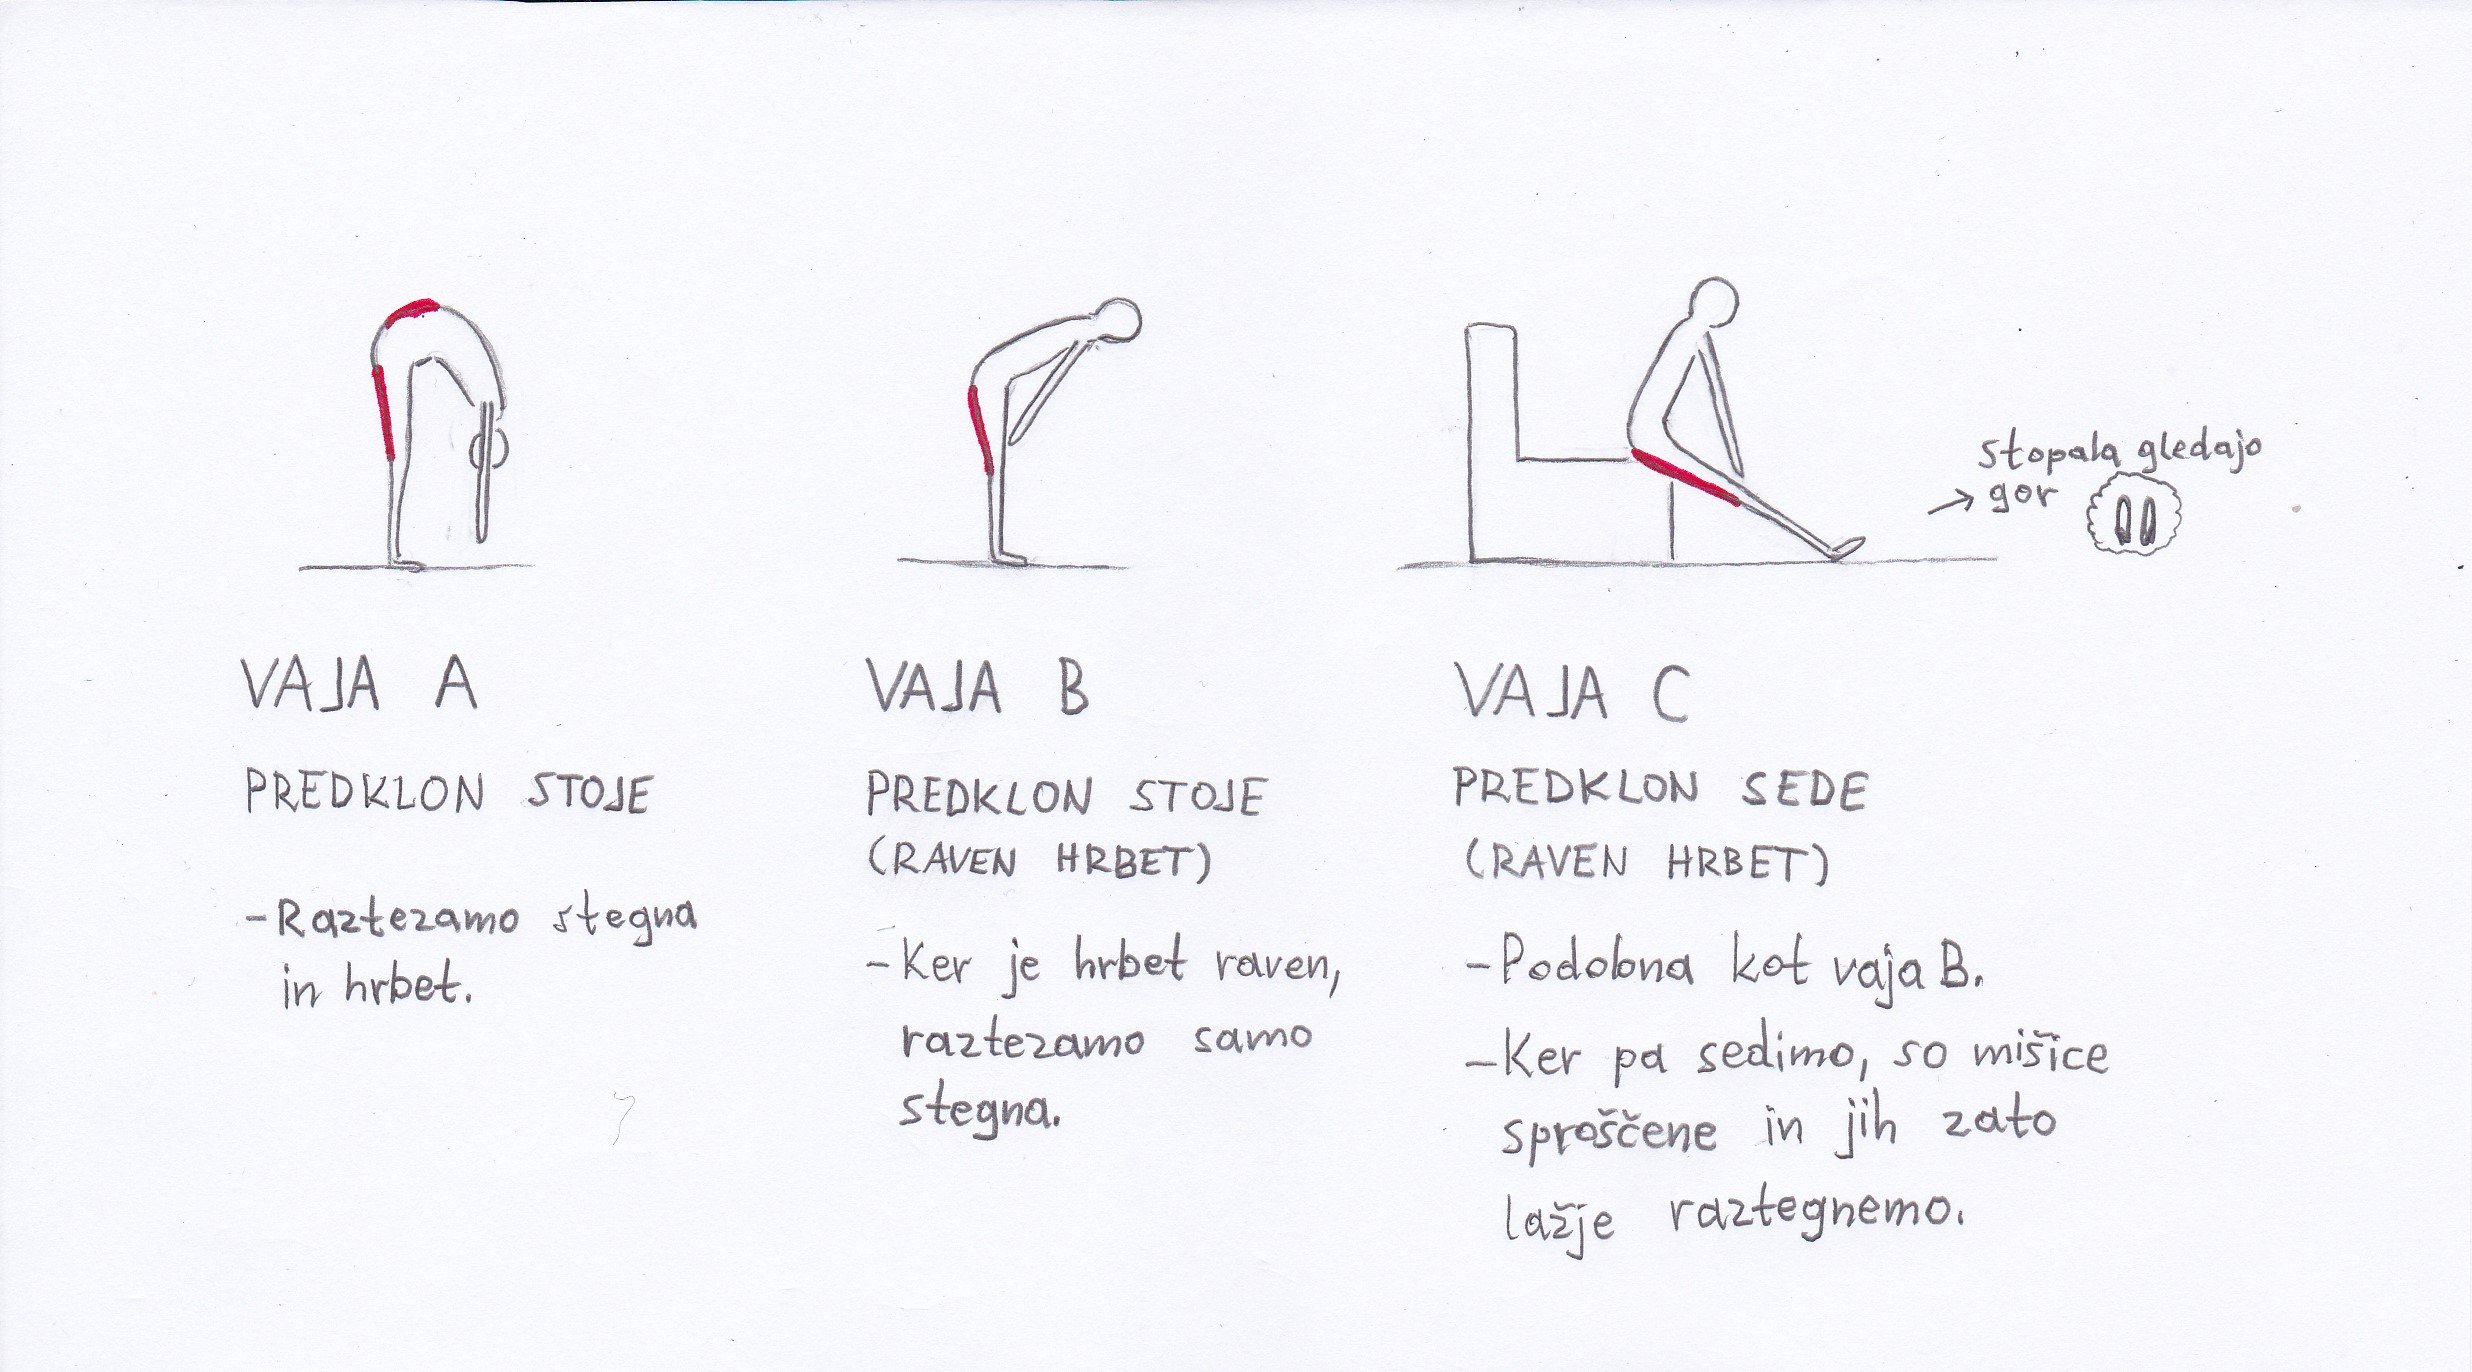 stopala gledajo
→ gor
VAJA A
PREDKLON STOJE
-Raztezamo stegna
in hrbet.
VAJA B
PREDKLON STOJE
(RAVEN HRBET)
-Ker je hrbet raven,
raztezamo samo
stegna.
VAJA C
PREDKLON SEDE
(RAVEN HRBET)
-Podobna kot vaja B.
-Ker pa sedimo, so mišice
sproščene in jih zato
lažje raztegnemo.